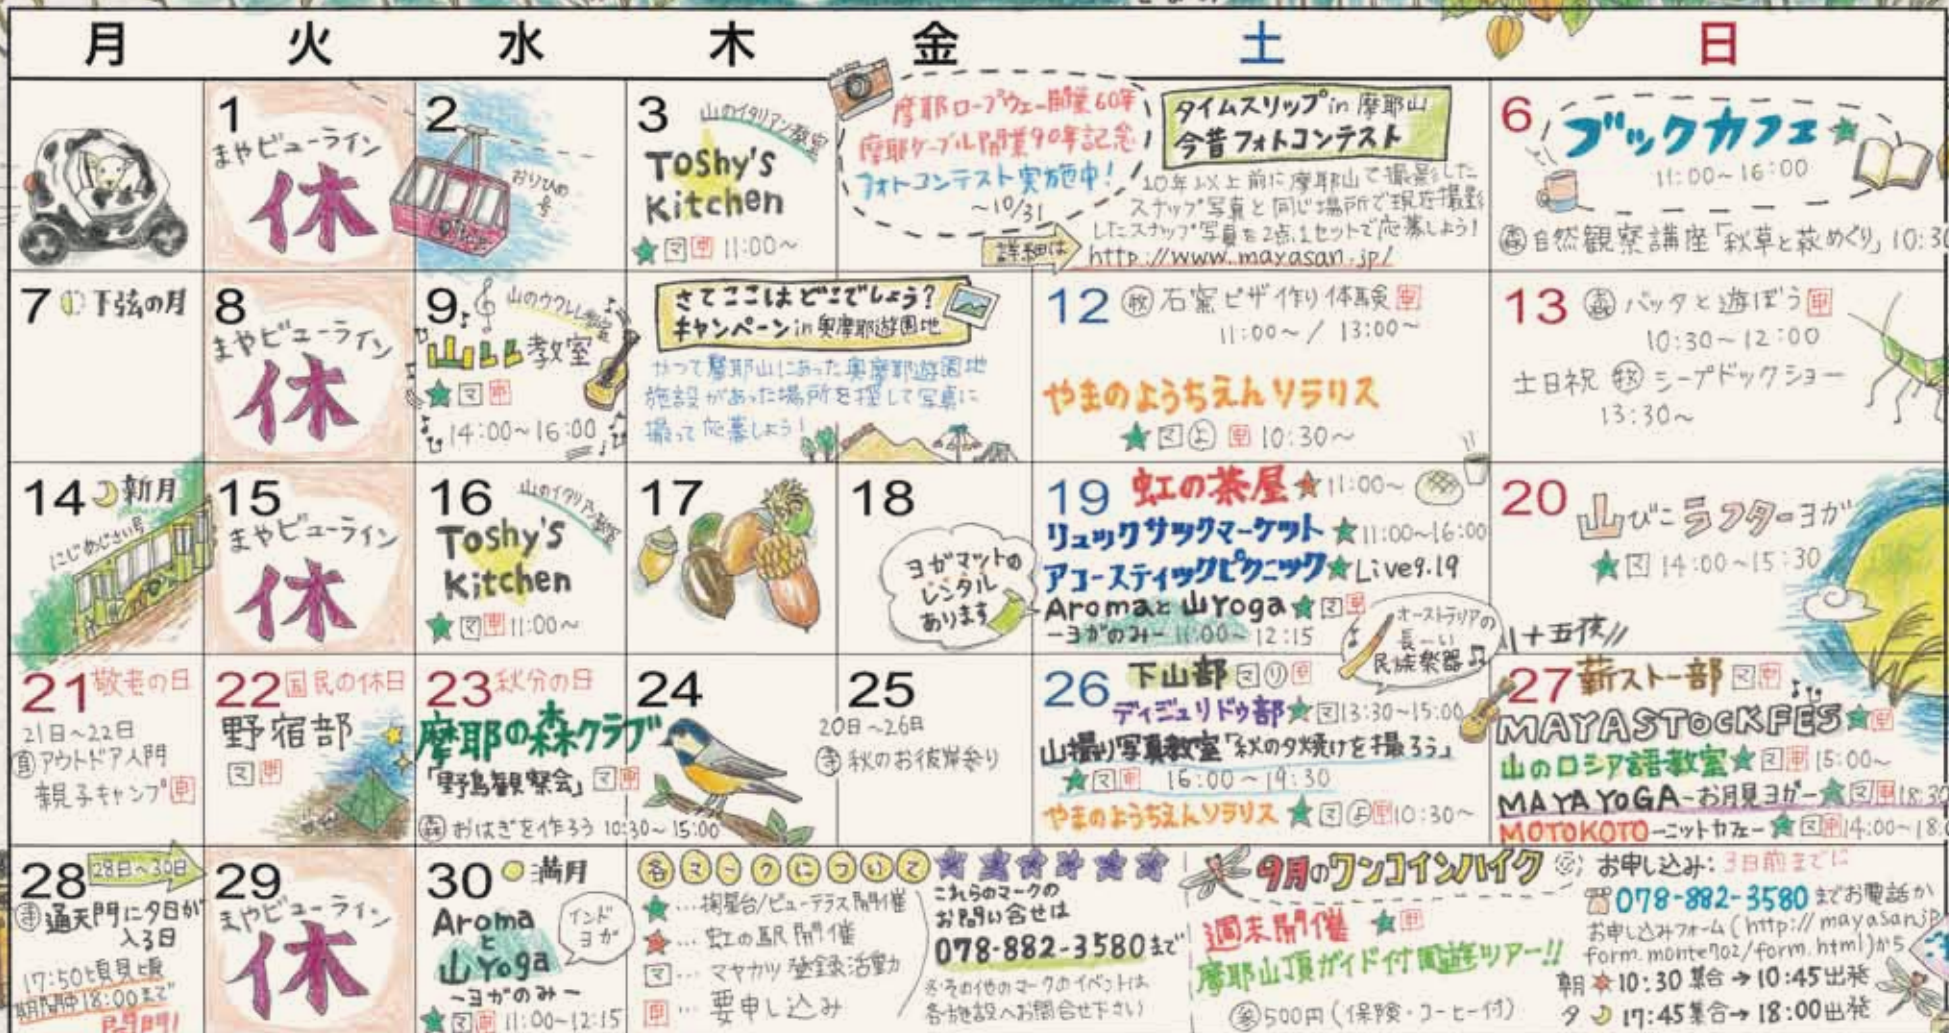 月 火 水 木 金 土 日
1
まやビューライン
休
2
おりひめ号
3
山のイタリアン教室
Toshy's
Kitchen
★ マ 申 11:00~
摩耶ロープウェー開業60年
摩耶ケーブル開業90年記念
フォトコンテスト実施中!
~10/31
タイムスリップin摩耶山
今昔フォトコンテスト
10年以上前に摩耶山で撮影した
スナップ写真と同じ場所で現在撮影
したスナップ写真を2点1セットで応募しよう!
詳細は
http://www.mayasan.jp/
6
ブックカフェ★
11:00~16:00
森 自然観察講座「秋草と萩めぐり」10:30
7 下弦の月
8
まやビューライン
休
9
山のウクレレ教室
山レレ教室
★ マ 申
14:00~16:00
さてここはどこでしょう?
キャンペーンin奥摩耶遊園地
かつて摩耶山にあった奥摩耶遊園地
施設があった場所を探して写真に
撮って応募しよう!
12 牧 石窯ピザ作り体験 申
11:00~/13:00~
やまのようちえんソラリス
★ マ よ 申 10:30~
13 森 バッタと遊ぼう 申
10:30~12:00
土日祝 牧 シープドックショー
13:30~
14 新月
にじあじさい号
15
まやビューライン
休
16
山のイタリアン教室
Toshy's
Kitchen
★ マ 申 11:00~
17
18
ヨガマットの
レンタル
あります
19 虹の茶屋★11:00~
リュックサックマーケット★11:00~16:00
アコースティックピクニック★Live9.19
Aromaと山Yoga★ マ 申
-ヨガのみ- 11:00~12:15
オーストラリアの
長~い
民族楽器
20
山びこラフターヨガ
★ マ 14:00~15:30
十五夜
21 敬老の日
21日~22日
自 アウトドア入門
親子キャンプ 申
22 国民の休日
野宿部
マ 申
23 秋分の日
摩耶の森クラブ
「野鳥観察会」 マ 申
森 おはぎを作ろう 10:30~15:00
24
25
20日~26日
寺 秋のお彼岸参り
26 下山部 マ り 申
ディジュリドゥ部★ マ 13:30~15:00
山撮り写真教室「秋の夕焼けを撮ろう」
★ マ 申 16:00~19:30
やまのようちえんソラリス ★ マ よ 申 10:30~
27 薪ストー部 マ 申
MAYASTOCKFES★ 申
山のロシア語教室★ マ 申 15:00~
MAYA YOGA-お月見ヨガ-★ マ 申 18:30
MOTOKOTO-ニットカフェ-★ マ 申 14:00~18:0
28 28日~30日
寺 通天門に夕日が
入る日
17:50頃見頃
期間中18:00まで
開門!
29
まやビューライン
休
30 満月
Aroma
と
山Yoga
-ヨガのみ-
★ マ 申 11:00~12:15
インド
ヨガ
各マークについて
★…掬星台/ビューテラス開催
★…虹の駅開催
マ…マヤカツ登録活動
申…要申し込み
これらのマークの
お問い合せは
078-882-3580まで
※その他のマークのイベントは
各施設へお問合せ下さい
9月のワンコインハイク
週末開催 ★ 申
摩耶山頂ガイド付周遊ツアー!!
参 500円(保険・コーヒー付)
お申し込み:3日前までに
078-882-3580までお電話か
お申し込みフォーム(http://mayasan.jp/
form.monte702/form.html)から
朝 10:30集合→10:45出発
夕 17:45集合→18:00出発